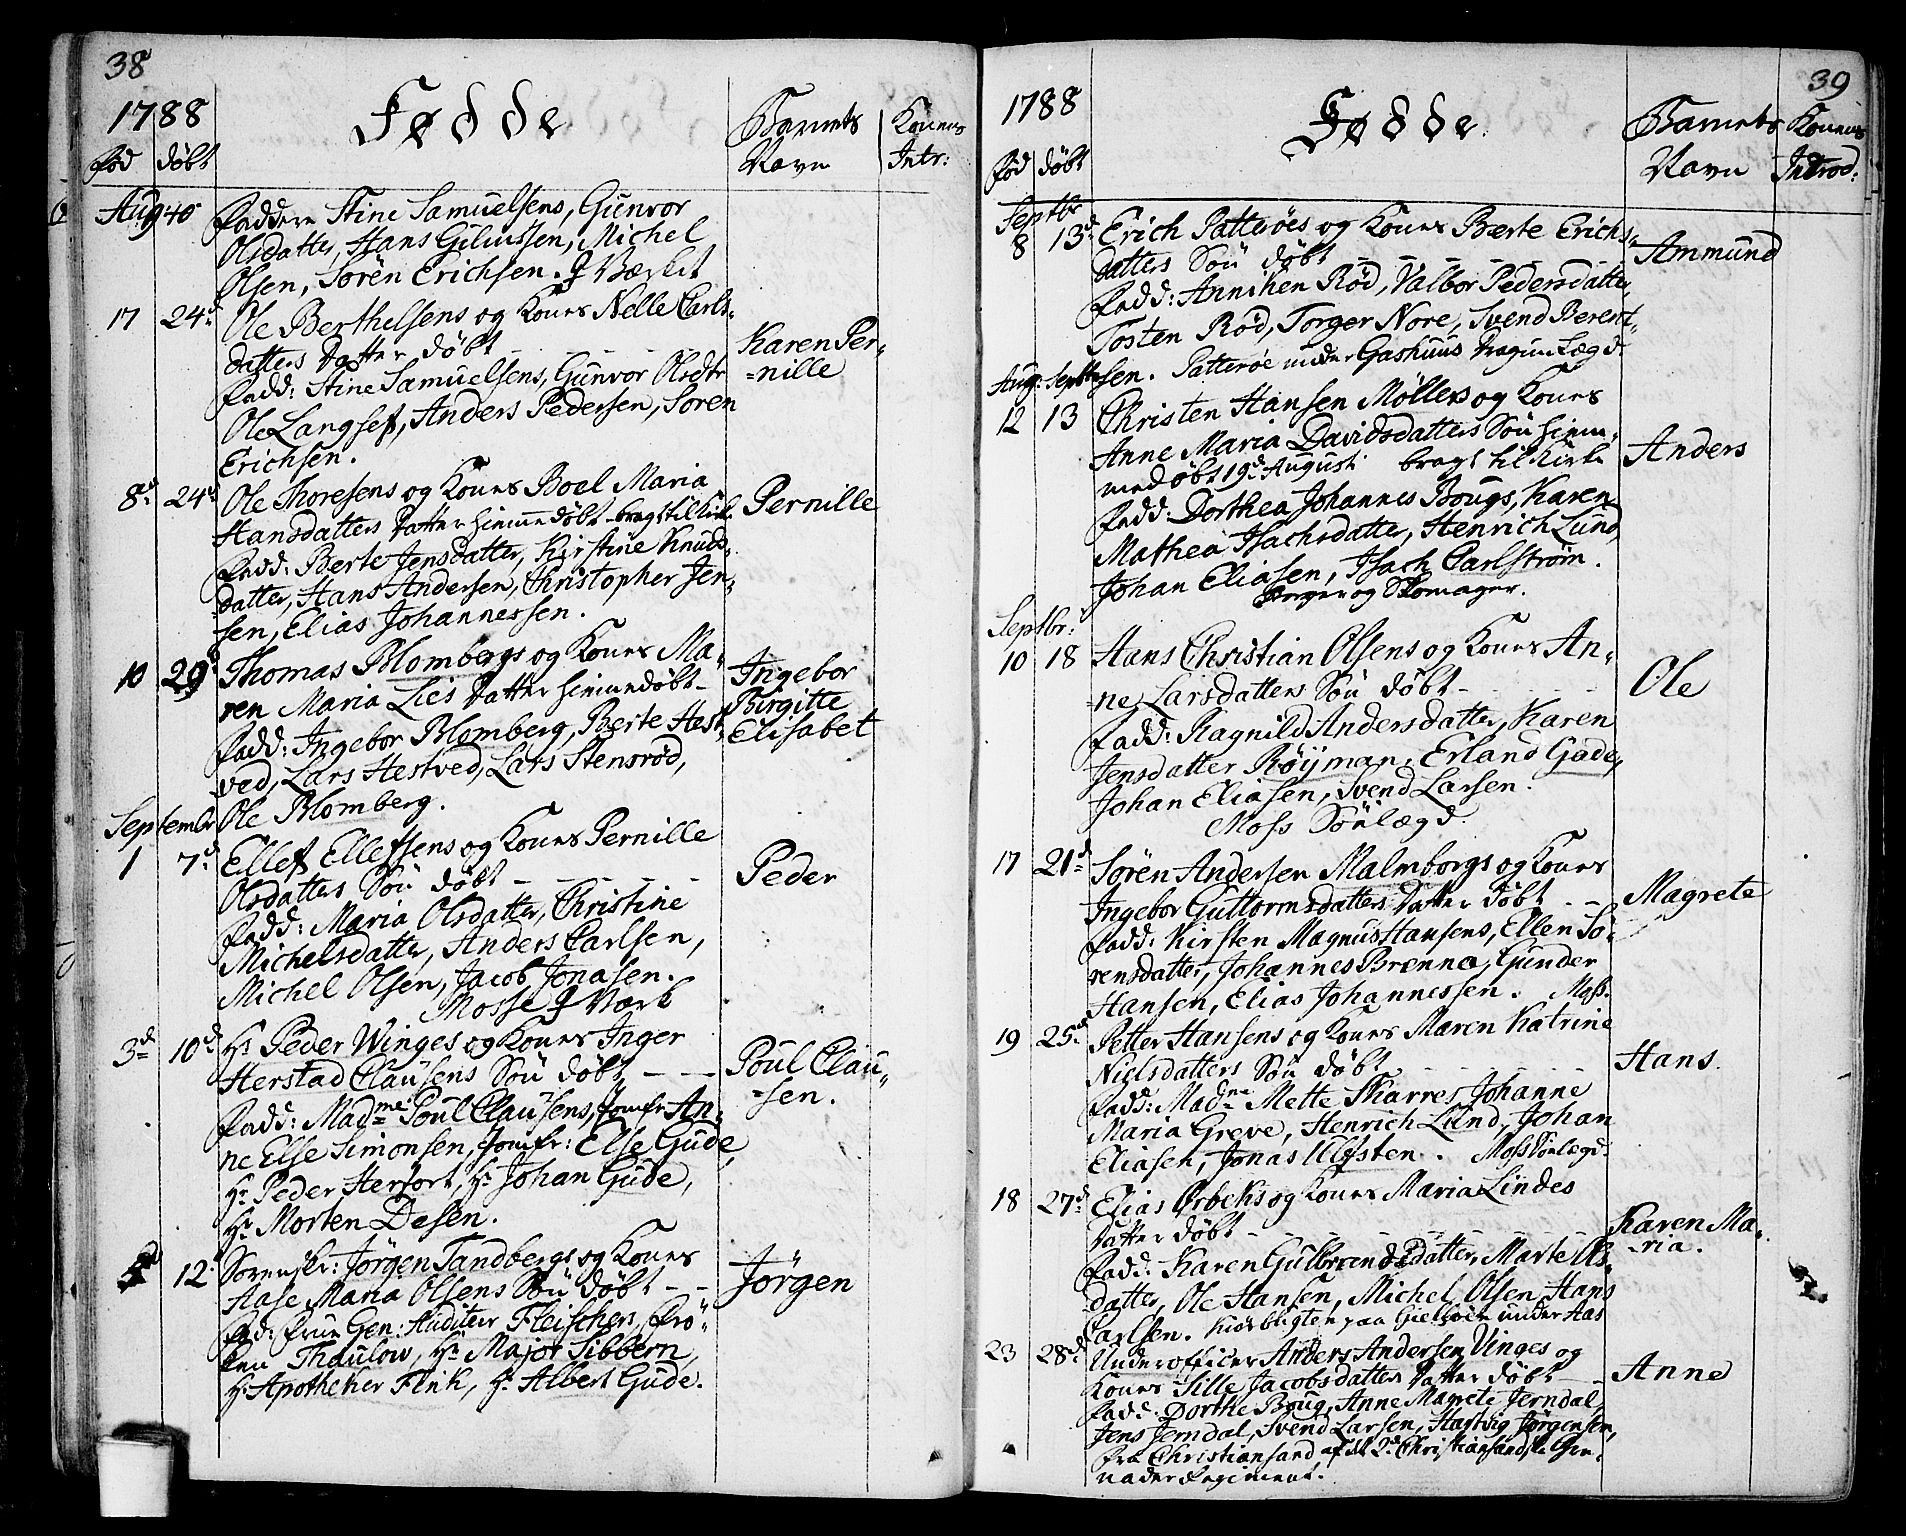 38
1788 Fødde Barnets Konens
fød døbt Navn Intr:
Aug 40 Faddere Stine Samuelsens, Gunvor
Olsdatter, Hans Giliussen, Michel
Olsen, Søren Erichsen. J Værket
17 24d Ole Berthelsens og Kones Nelle Carls-
datters Datter døbt - - - Karen Per-
Fadd: Stine Samuelsens, Gunvor Olsdtr =nille
Ole Langsef, Anders Pedersen, Søren
Erichsen.
8d 24d Ole Thoresens og Kones Boel Maria Pernille
Hansdatters Datter hiemmedøbt - bragt til Kirke
Fadd: Berte Jensdatter, Kirstine Knuds-
datter, Hans Andersen, Christopher Jen-
sen, Elias Johannessen.
10 29d Thomas Blombergs og Kones Ma- Ingebor
ren Maria Lies Datter hiemmedøbt - Birgitte
Fadd: Ingebor Blomberg, Berte Hest- Elisabet
ved, Lars Hestved, Lars Stensrød,
Ole Blomberg.
Septembr
1 7d Ellef Ellefsens og Kones Pernille
Olsdatters Søn døbt - - - Peder
Fadd: Maria Olsdatter, Christine
Michelsdatter, Anders Carlsen,
Michel Olsen, Jacob Jonasen.
Mosse J Værk
3d 10d Hr Peder Winges og Kones Inger
Herstad Clausens Søn døbt - - Poul Clau-
Fadd: Madme Poul Clausens, Jomfr An- =sen.
ne Else Simonsen, Jomfr: Else Gude,
Hr Peder Herfort, Hr Johan Gude,
Hr Morten Desen.
12 Sorenskr: Jørgen Tandbergs og Kones
Aase Maria Olsens Søn døbt - - Jørgen
Fad: Frue Gen: Auditeur Fleischers, Frø-
ken Thaulow, Hr Major Sibbern,
Hr Apotheker Fink, Hr Albert Gude.
39
1788 Fødde Barnets Konens
fød døbt Navn Introd:
Septbr
8 13d Erich Patterøes og Kones Berte Erichs- Ammund
datters Søn døbt - - -
Fadd: Anniken Rød, Valbor Pedersdatter,
Tosten Rød, Torger Nore, Svend Berent-
sen. Patterøe under Gashuus Dragun Lægd.
Aug: Septbr
12 13 Christen Hansen Møllers og Kones
Anne Maria Davidsdatters Søn hiem- Anders
medøbt 19d Augusti bragt til Kirke
Fadd: Dorthea Johannes Bougs, Karen
Mathea Isachsdatter, Henrich Lund,
Johan Eliasen, Isach Carlstrøm.
Borger og Skomager.
Septbr:
10 18 Hans Christian Olsens og Kones An-
=ne Larsdatters Søn døbt - - - Ole
Fadd: Ragnild Andersdatter, Karen
Jensdatter Røijman, Erland Gude,
Johan Eliasen, Svend Larsen.
Moss Sølægd.
17 21d Søren Andersen Malmborgs og Kones
Ingebor Guttormsdatters Datter døbt - - Magrete
Fadd: Kirsten Magnus Hansens, Ellen Sø-
rensdatter, Johannes Brenna, Gunder
Hansen, Elias Johannessen. Moss.
19 25d Petter Hansens og Kones Maren Katrine
Nielsdatters Søn døbt - - - Hans.
Fadd: Madme Mette Skarres, Johanne
Maria Greve, Henrich Lund, Johan
Eliasen, Jonas Ulfsten. Moss Sølægd.
18 27d Elias Ørbeks og Kones Maria Lindes
Datter døbt - - - Karen Ma-
Fadd: Karen Gulbrandsdatter, Marte Ols- =ria.
datter, Ole Hansen, Michel Olsen, Hans
Carlsen. under Aas
23 28d Underofficer Anders Andersen Vinges og
Kones Sille Jacobsdatters Datter døbt - Anne
Fadd: Dorthe Boug, Anne Magrete Jerndal,
Jens Jerndal, Svend Larsen, Hartvig Jørgensen,
fra Christiansand af det 2d Christiansandske Gre-
nader Regiment.